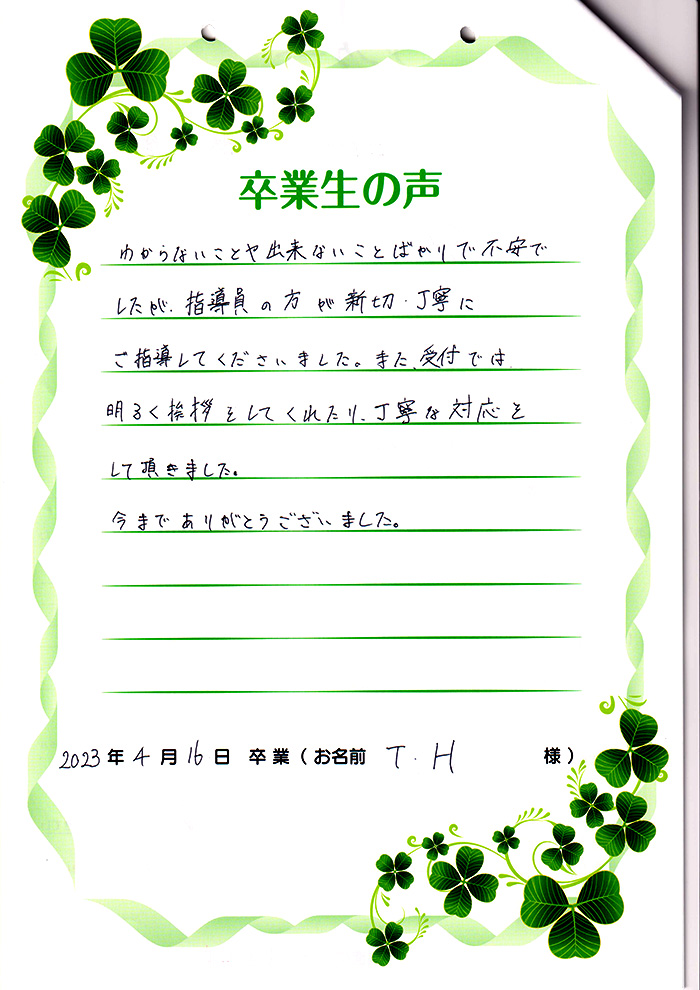 卒業生の声
わからないことや出来ないことばかりで不安で
したが、指導員の方が新切・丁寧に
ご指導してくださいました。また、受付では
明るく挨拶をしてくれたり、丁寧な対応を
して頂きました。
今までありがとうございました。
2023年4月16日 卒業(お名前 T.H 様)